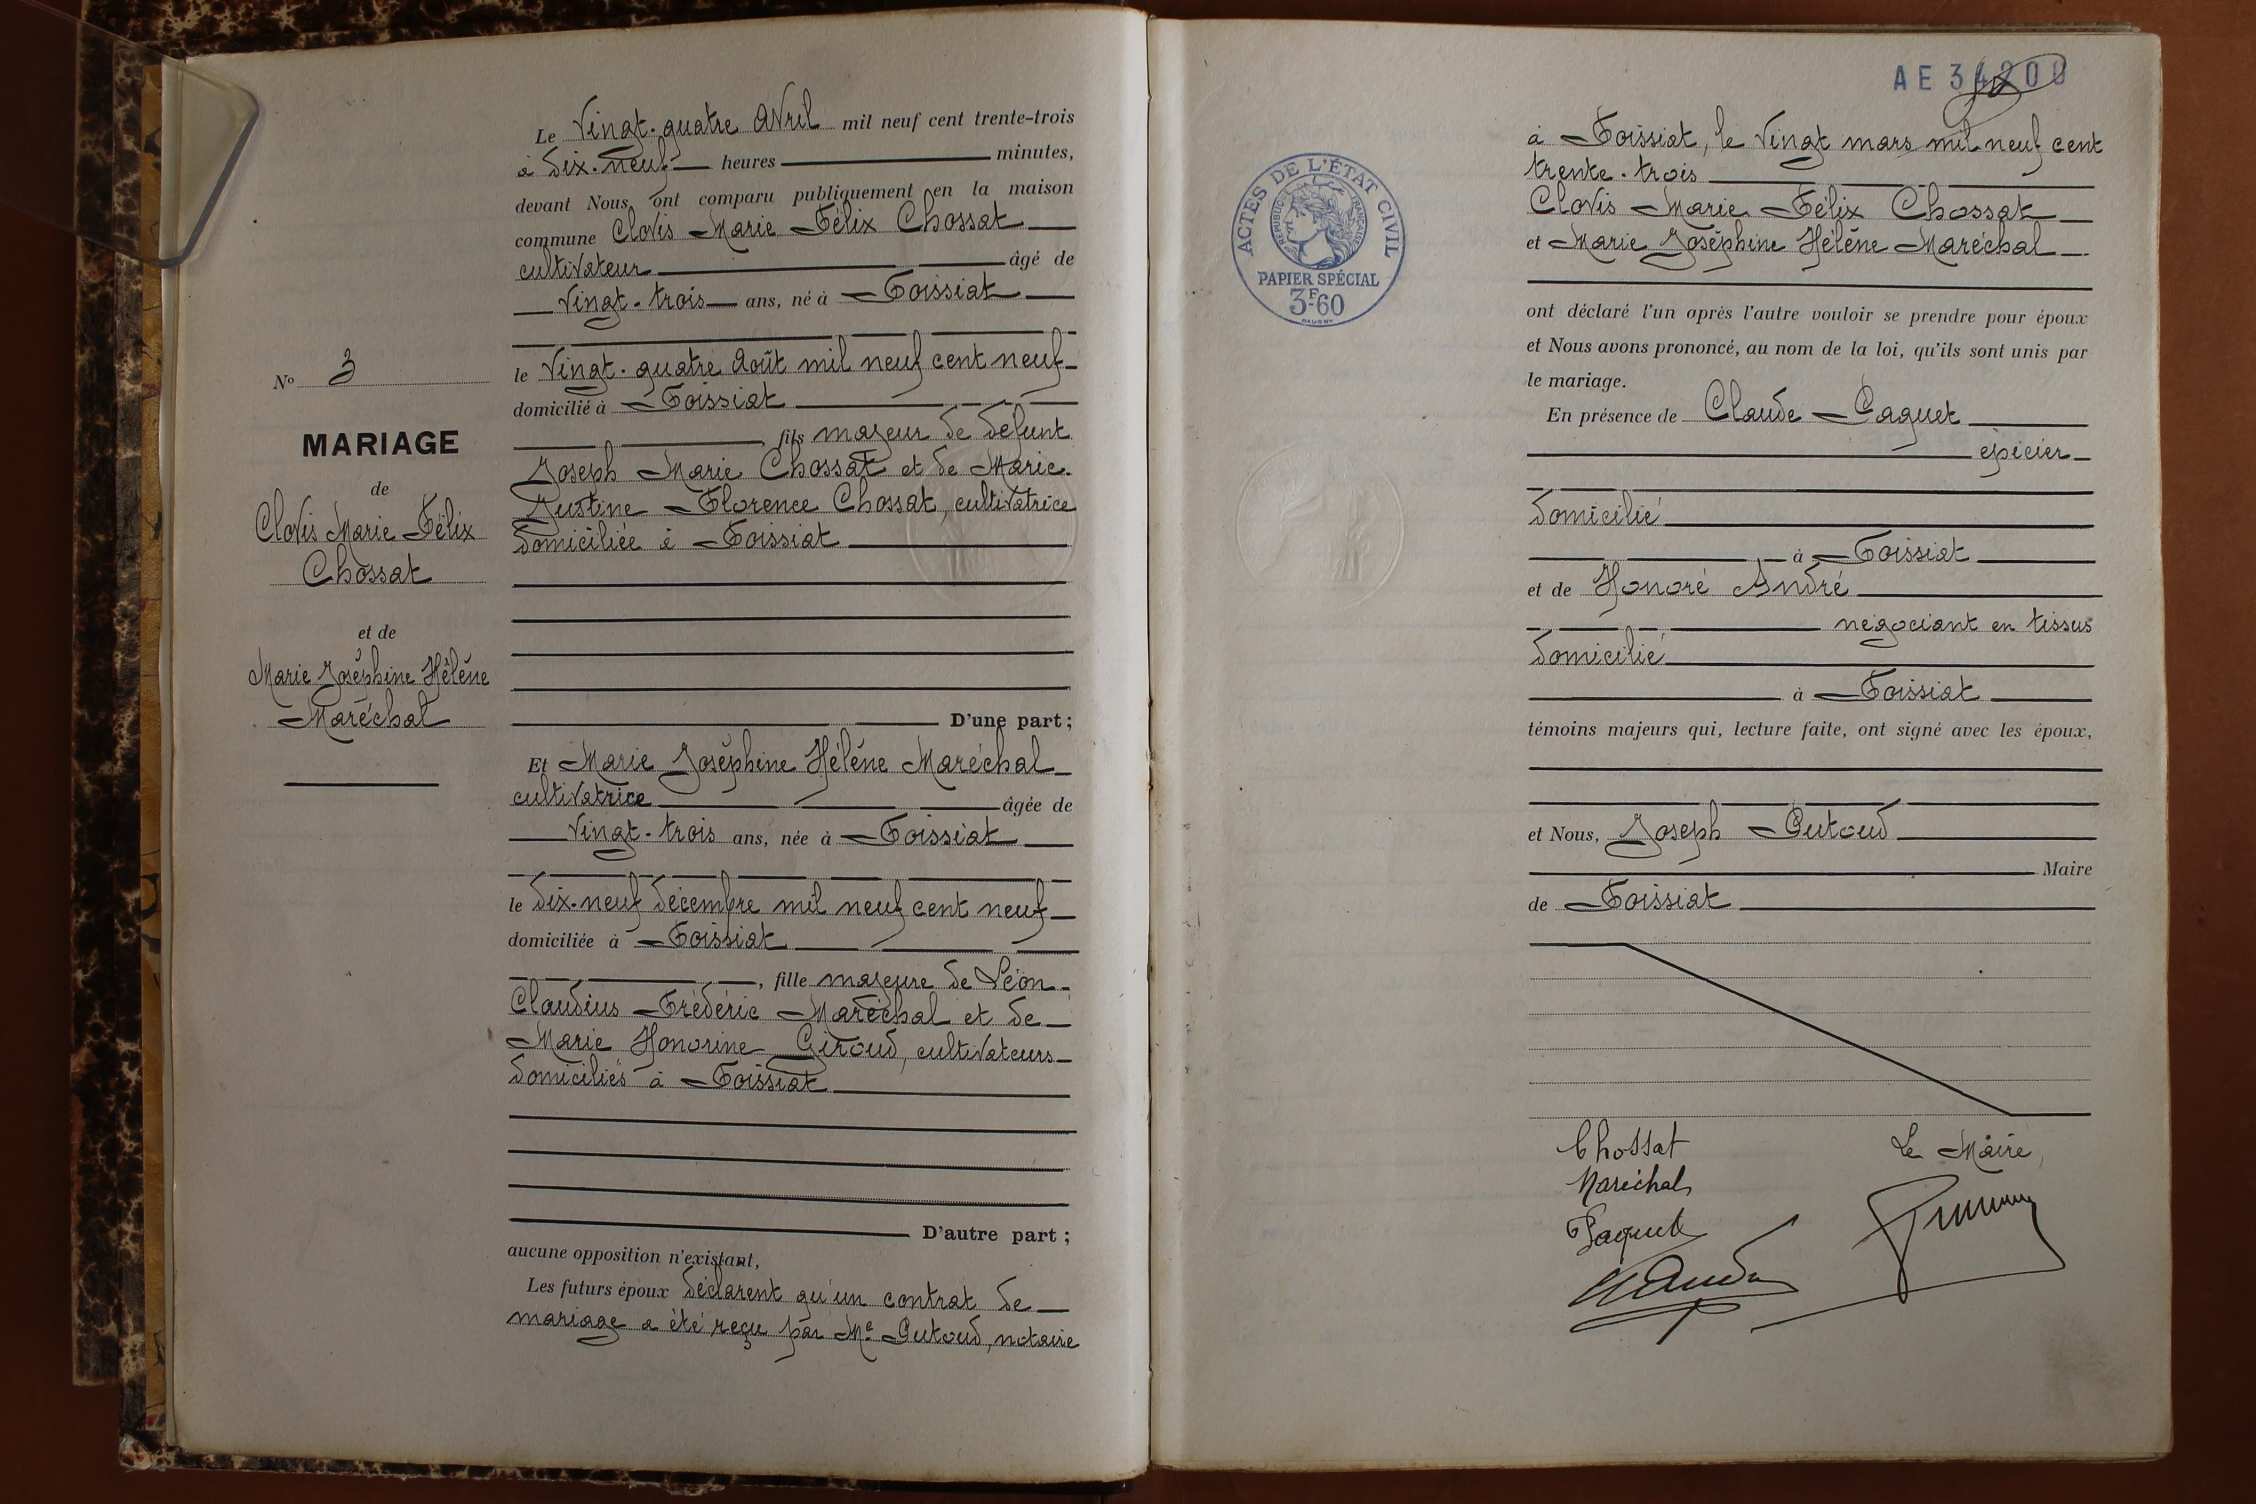 Le Vingt-quatre Avril mil neuf cent trente-trois
à dix-neuf heures minutes,
devant Nous ont comparu publiquement en la maison
commune Clovis Marie Félix Chossat
cultivateur âgé de
vingt-trois ans, né à Foissiat
le Vingt-quatre Août mil neuf cent neuf
domicilié à Foissiat
fils majeur de défunt
Joseph Marie Chossat et de Marie
Justine Florence Chossat, cultivatrice
domiciliée à Foissiat
D'une part;
Et Marie Joséphine Hélène Maréchal
cultivatrice âgée de
Vingt-trois ans, née à Foissiat
le dix-neuf décembre mil neuf cent neuf
domiciliée à Foissiat
, fille majeure de Léon
Claudius Frédéric Maréchal et de
Marie Honorine Giroud, cultivateurs
domiciliés à Foissiat
D'autre part;
aucune opposition n'existant,
Les futurs époux déclarent qu'un contrat de
mariage a été reçu par Me Putoud, notaire
No 3
MARIAGE
de
Clovis Marie Félix
Chossat
et de
Marie Joséphine Hélène
Maréchal
AE 34200
à Foissiat, le Vingt mars mil neuf cent
trente-trois
Clovis Marie Félix Chossat
et Marie Joséphine Hélène Maréchal
ont déclaré l'un après l'autre vouloir se prendre pour époux
et Nous avons prononcé, au nom de la loi, qu'ils sont unis par
le mariage.
En présence de Claude Paquet
épicier
domicilié
à Foissiat
et de Honoré André
négociant en tissus
domicilié
à Foissiat
témoins majeurs qui, lecture faite, ont signé avec les époux,
et Nous, Joseph Putoud
Maire
de Foissiat
ACTES DE L'ÉTAT CIVIL
RÉPUBLIQUE FRANÇAISE
PAPIER SPÉCIAL
3F-60
Chossat
Maréchal
Paquet
Le Maire,